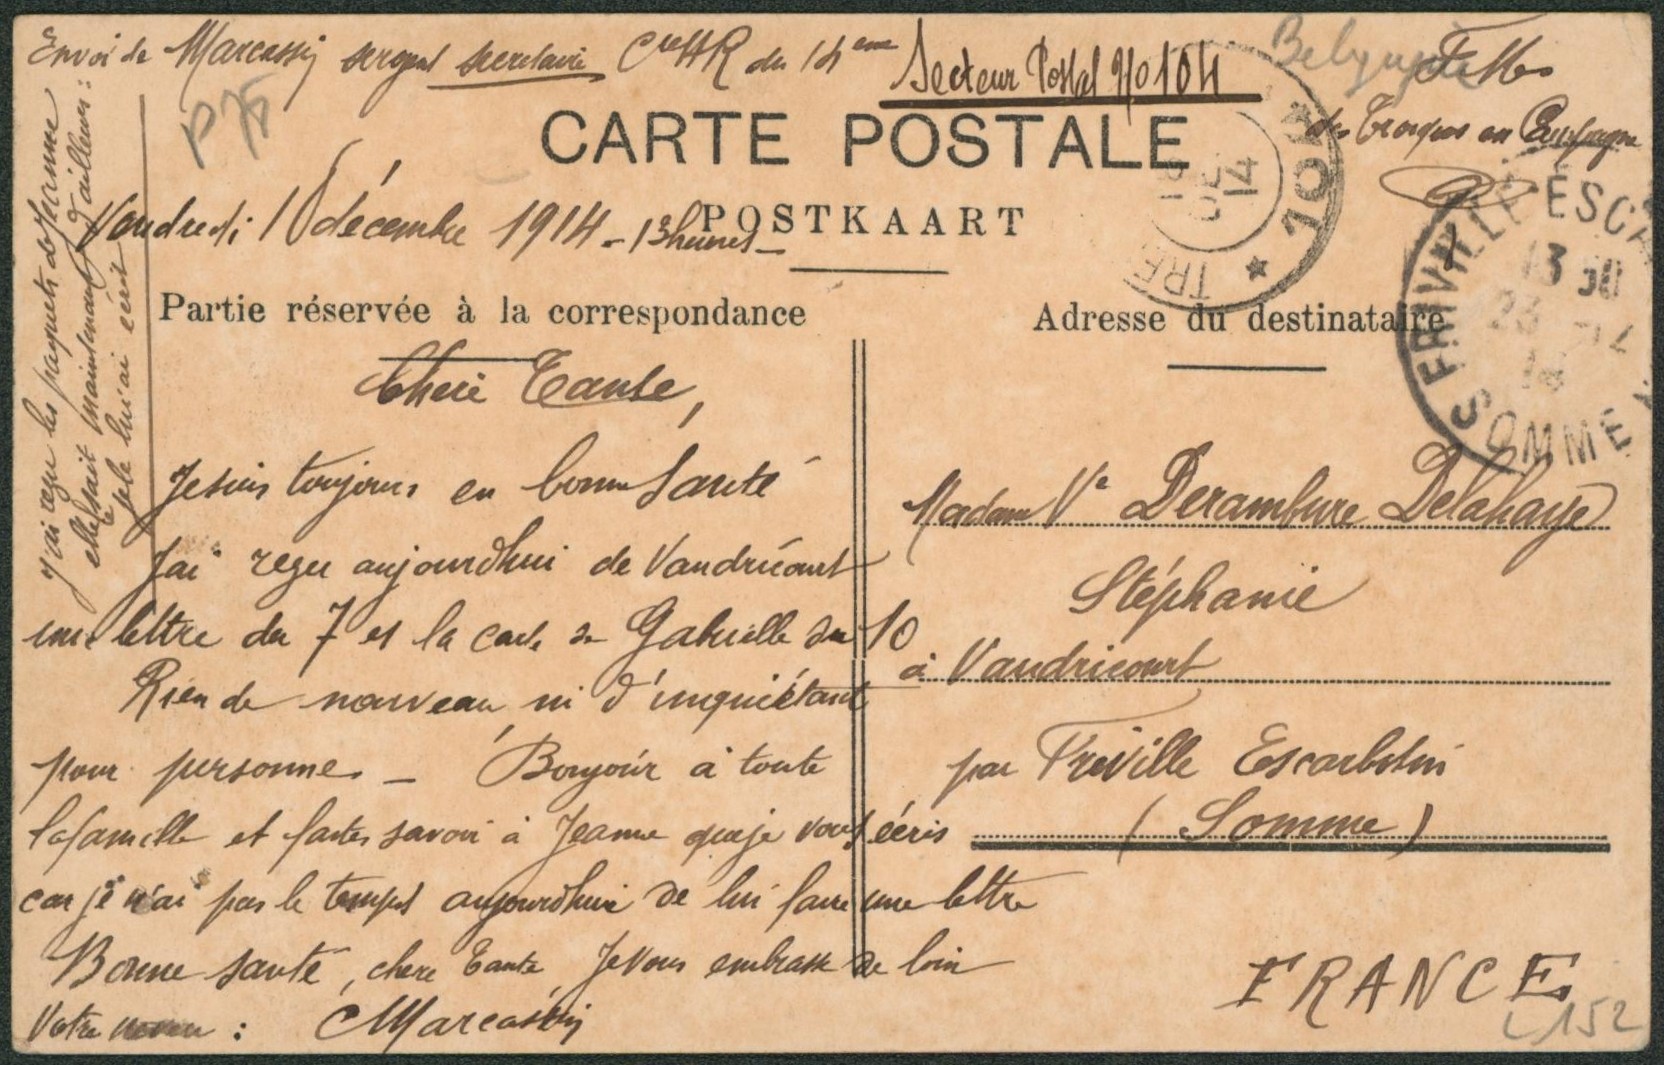 Envoi de Marcassin sergent secrétaire Cie HR du 14eme Secteur Postal No 104
Belgique
des Troupes en Campagne
P 75
CARTE POSTALE
POSTKAART
Vendredi 18 décembre 1914 - 13 heures -
Partie réservée à la correspondance
Adresse du destinataire
Chere Tante,
Je suis toujours en bonne Santé
J'ai reçu aujourdhui de Vaudricourt
une lettre du 7 et la carte de Gabrielle du 10
Rien de nouveau, ni d'inquiétant
pour personne - Bonjour à toute
la famille et faites savoir à Jeanne que je vous écris
car je n'ai pas le temps aujourdhui de lui faire une lettre
Bonne santé, chere Tante, Je vous embrasse de loin
Votre neveu : Marcassin
J'ai reçu les paquets de Jeanne
elle le sait maintenant d'ailleurs :
je le lui ai écrit
Madame Ve Derambure Delahaye
Stéphanie
à Vaudricourt
par Friville Escarbotin
(Somme)
FRANCE
L152
TRE
* 104
14
FRIVILLE-ESCA
13 30
23
SOMME